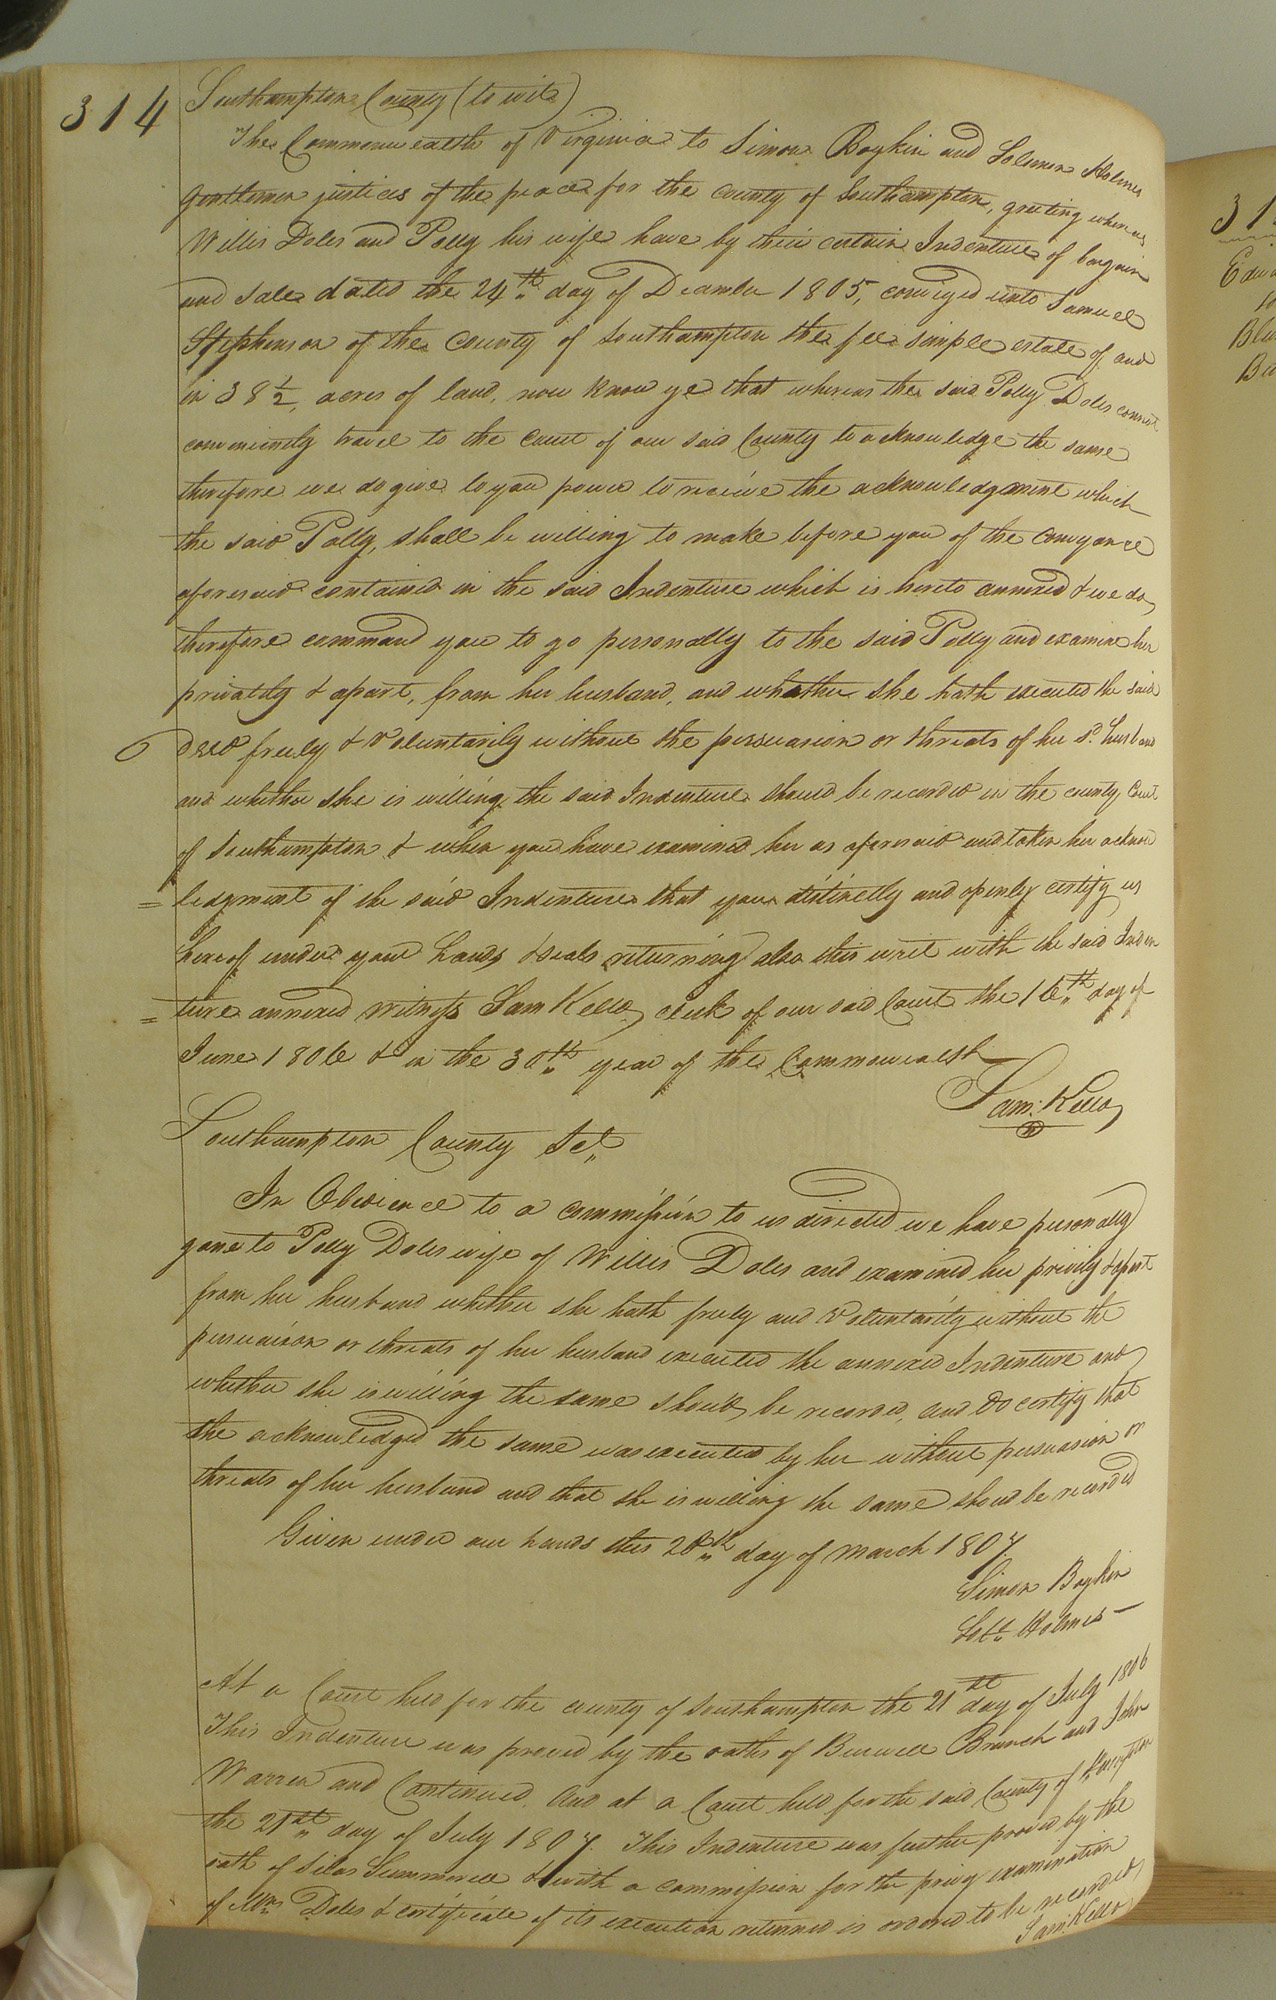 314
Southampton County (to wit)
The Commonwealth of Virginia to Simon Boykin and Solomon Holmes
Gentlemen justices of the peace for the county of Southampton, greeting whereas
Willis Doles and Polly his wife have by their certain Indenture of bargain
and sale dated the 24th day of December 1805, conveyed unto Samuel
Stephenson of the County of Southampton the fee simple estate of and
in 38½ acres of land, now know ye that whereas the said Polly Doles cannot
conveniently travel to the Court of our said County to acknowledge the same
therefore we do give to you power to receive the acknowledgment which
the said Polly, shall be willing to make before you of the Conveyance
aforesaid contained in the said Indenture which is hereto annexed & we do
therefore command you to go personally to the said Polly and examine her
privately & apart, from her husband, and whether she hath executed the said
deed freely & Voluntarily without the persuasion or threats of her sd. husband
and whether she is willing the said Indenture should be recorded in the county Court
of Southampton & when you have examined her as aforesaid and taken her acknow
= ledgment of the said Indenture that you distinctly and openly certify us
hereof under your hands & seals returning also this writ with the said Inden
= ture annexed Witness Sam Kello, clerk of our said Court the 16th day of
June 1806 & in the 30th year of the Commonwealth
Sam: Kello
Southampton County Sct.
In Obedience to a commission to us directed we have personally
gone to Polly Doles wife of Willis Doles and examined her privily & apart
from her husband whether she hath freely and Voluntarily without the
persuaison or threats of her husband executed the annexed Indenture and
whether she is willing the same should be recorded, and do certify that
she acknowledged the same was executed by her without persuasion or
threats of her husband and that she is willing the same should be recorded
Given under our hands this 20th day of March 1807.
Simon Boykin
Soln. Holmes
At a Court held for the county of Southampton the 21st day of July 1806
This Indenture was proved by the oaths of Burwell Branch and John
Warren and Continued. And at a Court held for the said County of Southampton
the 21st day of July 1807. This Indenture was further proved by the
oath of Silas Summerell & with a commission for the privy examination
of Mrs Doles & certificate of its execution returned is ordered to be recorded
Sam: Kello